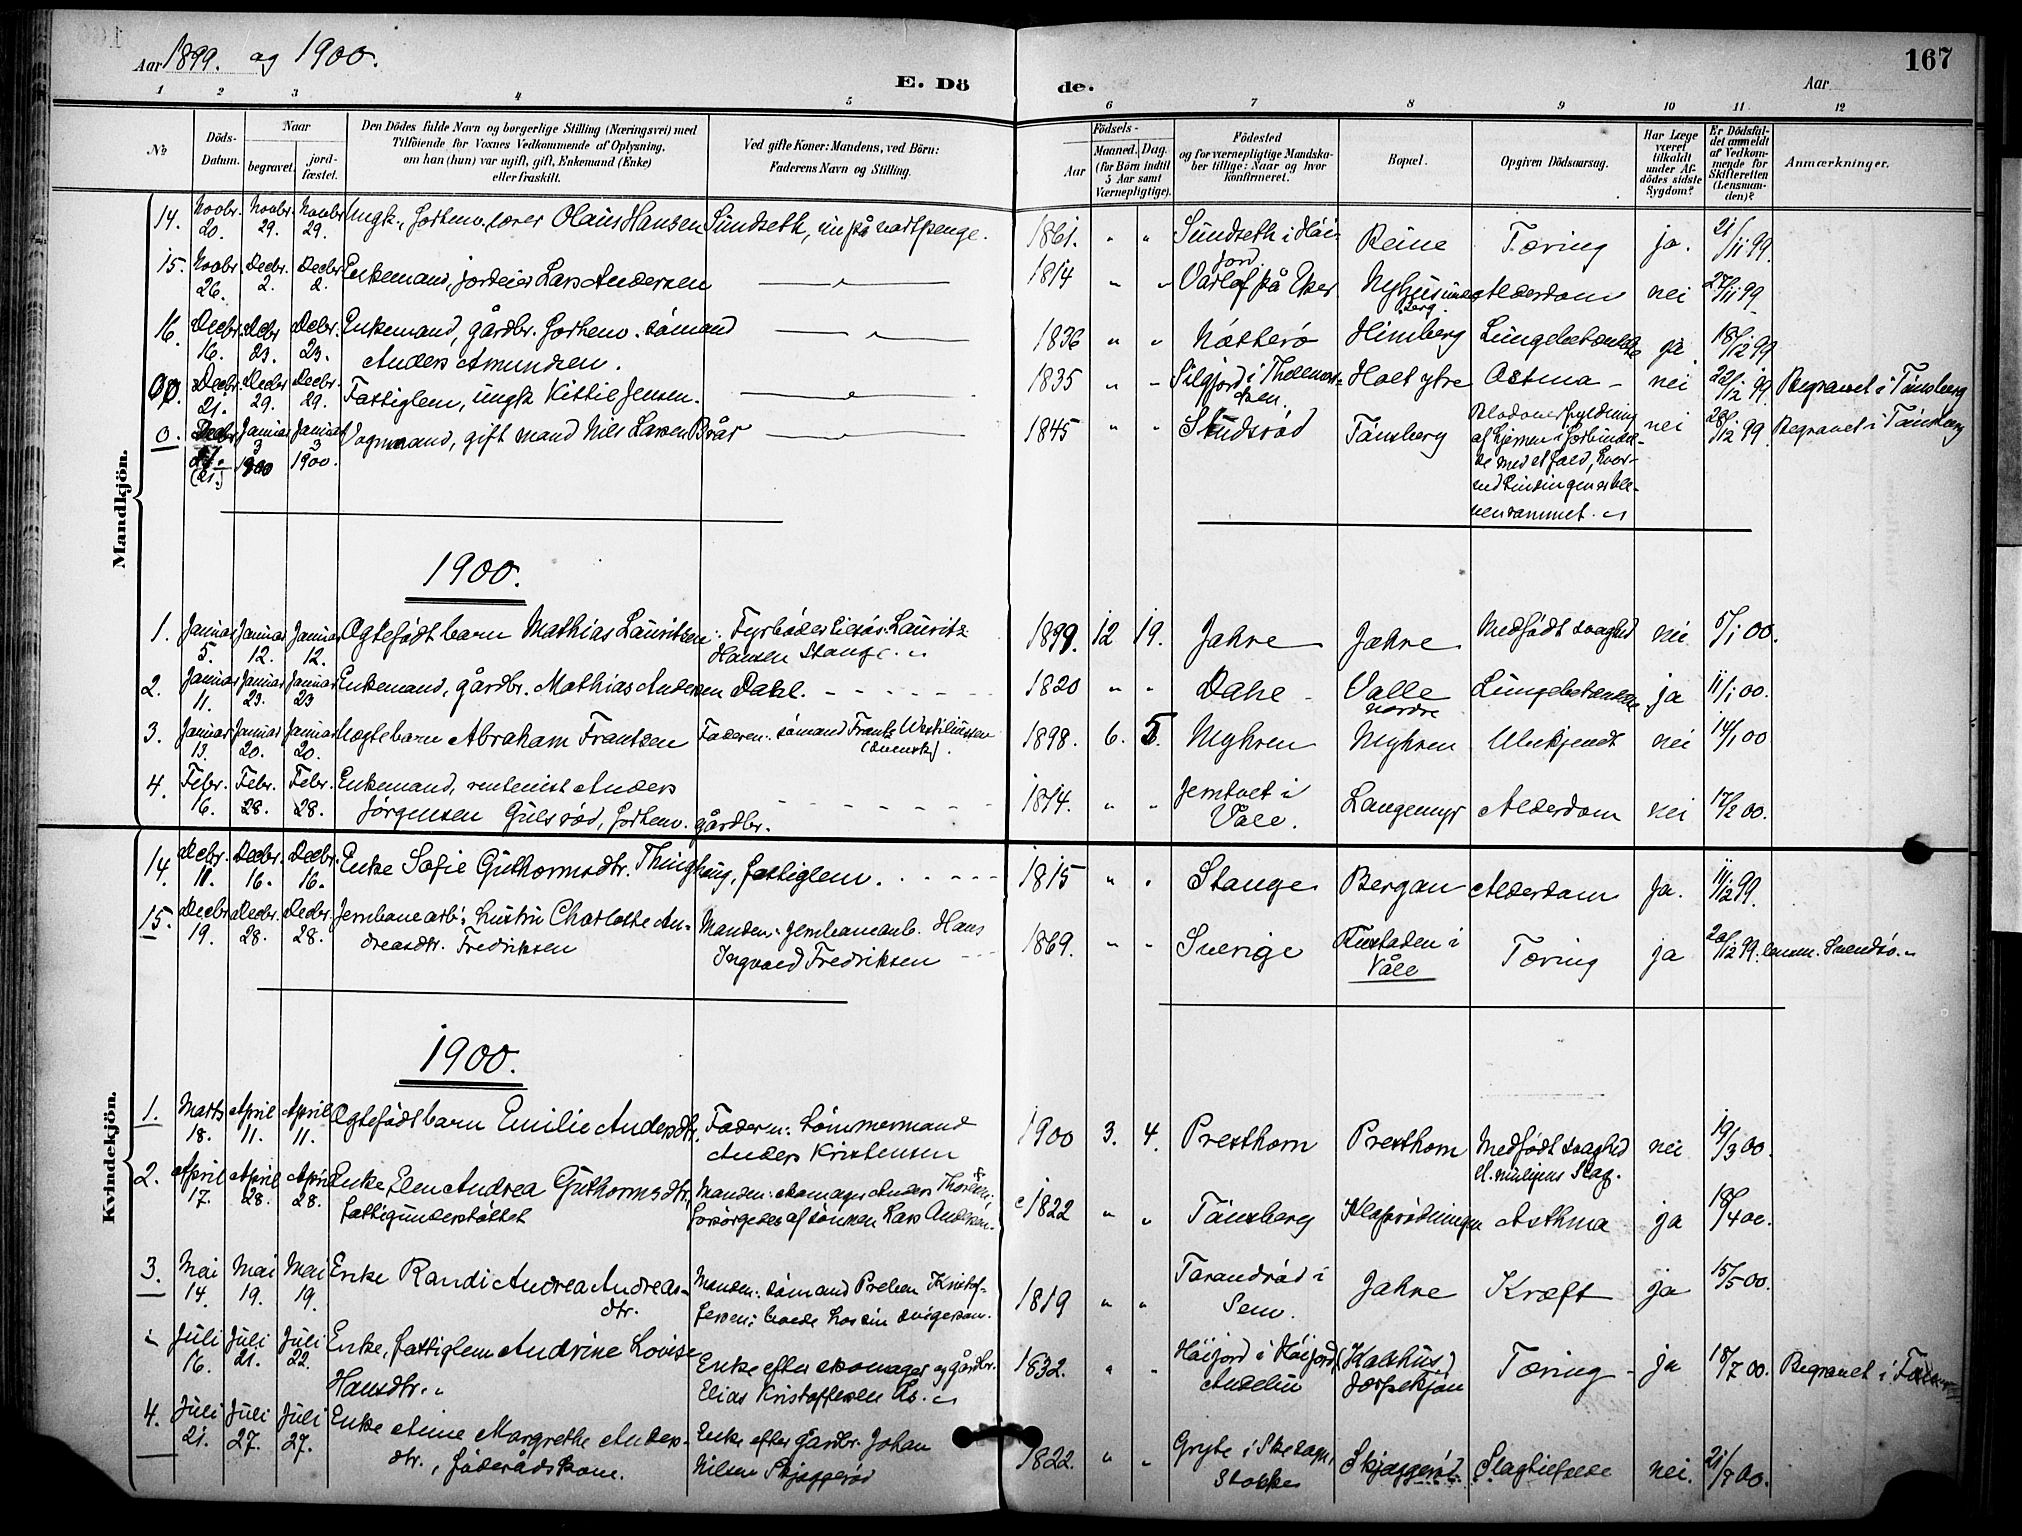 Aar 1899. og 1900.
E. Dö
de.
Aar
167
1 2 3 4 5 6 7 8 9 10 11 12
No
Döds-Datum.
Naar
begravet.
jord-fæstet.
Den Dödes fulde Navn og borgerlige Stilling (Næringsvei) med
Tilföiende for Voxnes Vedkommende af Oplysning,
om han (hun) var ugift, gift, Enkemand (Enke)
eller fraskilt.
Ved gifte Koner: Mandens, ved Börn:
Faderens Navn og Stilling.
Födsels-
Aar
Maaned. Dag.
(for Börn indtil
5 Aar samt
Værnepligtige).
Födested
og for værnepligtige Mandska-
ber tillige: Naar og hvor
konfirmeret.
Bopæl.
Opgiven Dödsaarsag.
Har Læge
været
tilkaldt
under Af-
dödes sidste
Sygdom?
Er Dödsfal-
det anmeldt
af Vedkom-
mende for
Skifteretten
(Lensman-
den)?
Anmærkninger.
Mandkjön.
14. Novbr. 20. Novbr. 29. Novbr. 29. Ungk., forhenv. lærer Olaus Hansen Sundseth, 1861. " " Sundseth i Höi-jord. Reine Tæring ja. 21/11 99.
15. Novbr. 26. Decbr. 2. Decbr. 2. Enkemand, jordeier Lars Andersen 1814 " " på Eker Alderdom nei 27/11 99
16. Decbr. 16. Decbr 23. Decbr. 23. Enkemand, gårdbr. forhenv. sömand
Anders Amundsen. 1836 " " Nötterö Himberg Lungebetændelse ja 18/12 99
Decbr. 21. Decbr 29. Decbr. 29. Fattiglem, ungk Kittil Jensen. 1835 " " Silgjord i Thelemarken. Holt ytre Astma nei 22/12 99 Begravet i Tönsberg
0. Decbr 27. (21.) Januar 3 1900 Januar 3 1900. Vognmand, gift mand Nils Larsen Brår 1845 " " Tönsberg Blodoverfyldning
af hjernen i forbindel-
se med et fald, nei 28/12 99 Begravet i Tönsberg
1900.
1. Januar 5. Januar 12. Januar 12. Ægtefödt barn Mathias Lauritsen Fyrböder Lauritz
Hansen Stange. 1899 12 19. Jahre Jahre Medfödt svaghed nei 5/1 00.
2. Januar 11. Januar 23. Januar 23 Enkemand, gårdbr. Mathias Andersen Dahl. 1820 " " Dahl Valle
nordre Lungebetændelse ja 11/1 00.
3. Januar 13. Januar 20. Januar 20. Uægte barn Abraham Frantsen Faderen: sömand Frants
(svensk). 1898. 6. 5. Myhren Myhren Ubekjendt nei 14/1 00
4. Febr. 16. Febr. 28. Febr. 28. Enkemand, rentenist Anders
Jörgensen Gulsröd, forhenv. gårdbr. 1814. " " Jemtvet i
Våle. Langemyr Alderdom nei 17/2 00.
Kvindekjön.
14. Decbr. 11. Decbr. 16. Decbr. 16. Enke Sofie Guthormsdtr. Thinghaug, fattiglem. 1815 " " Stange Bergan Alderdom ja. 11/12 99.
15. Decbr 19. Decbr. 28. Decbr. 28. Jernbanearb's hustru Charlotte An-
dreasdtr. Fredriksen Manden: jernbanearb. Hans
Ingvald Fredriksen 1869. " " Sverige i
Våle Tæring ja 20/12 99.
1900.
1. Marts 18. April 11. April 11. Ægtefödt barn Emilie Andersdtr. Faderen: tömmermand
Anders Kristensen 1900 3. 4. Presthorn Presthorn Medfödt svaghed
el. muligens Slag. nei 19/3 00.
2. April 17. April 28. April 28. Enke Elen Andrea Guthormsdtr,
fattigunderstöttet Manden: skomager Anders
forsörgedes af sönnen Lars Andersen. c1822 " " Tönsberg Asthma ja 18/4 00.
3. Mai 14. Mai 19. Mai 19. Enke Randi Andrea Andreas-
dtr. Manden: sömand Preben Kristof-
fersen; boede hos sin svigersön. 1819 " " Tarandröd i
Sem. Jahre Kræft ja 15/5 00.
Juli 16. Juli 21. Juli 22. Enke, fattiglem Andrine Lovise
Hansdtr. Enke efter skomager og gårdbr.
Elias Kristoffersen 1832. " Höijord i Höijord,
Andebu Tæring ja 18/7 00. Begravet i
4. Juli 21. Juli 27. Juli 27. Enke Anne Margrethe Anders-
dtr., föderådskone. Enke efter Gårdbr. Johan
Nilsen Skjeggeröd 1822. " " i Skesogn,
Stokke Skjeggeröd Slagtilfælde nei.